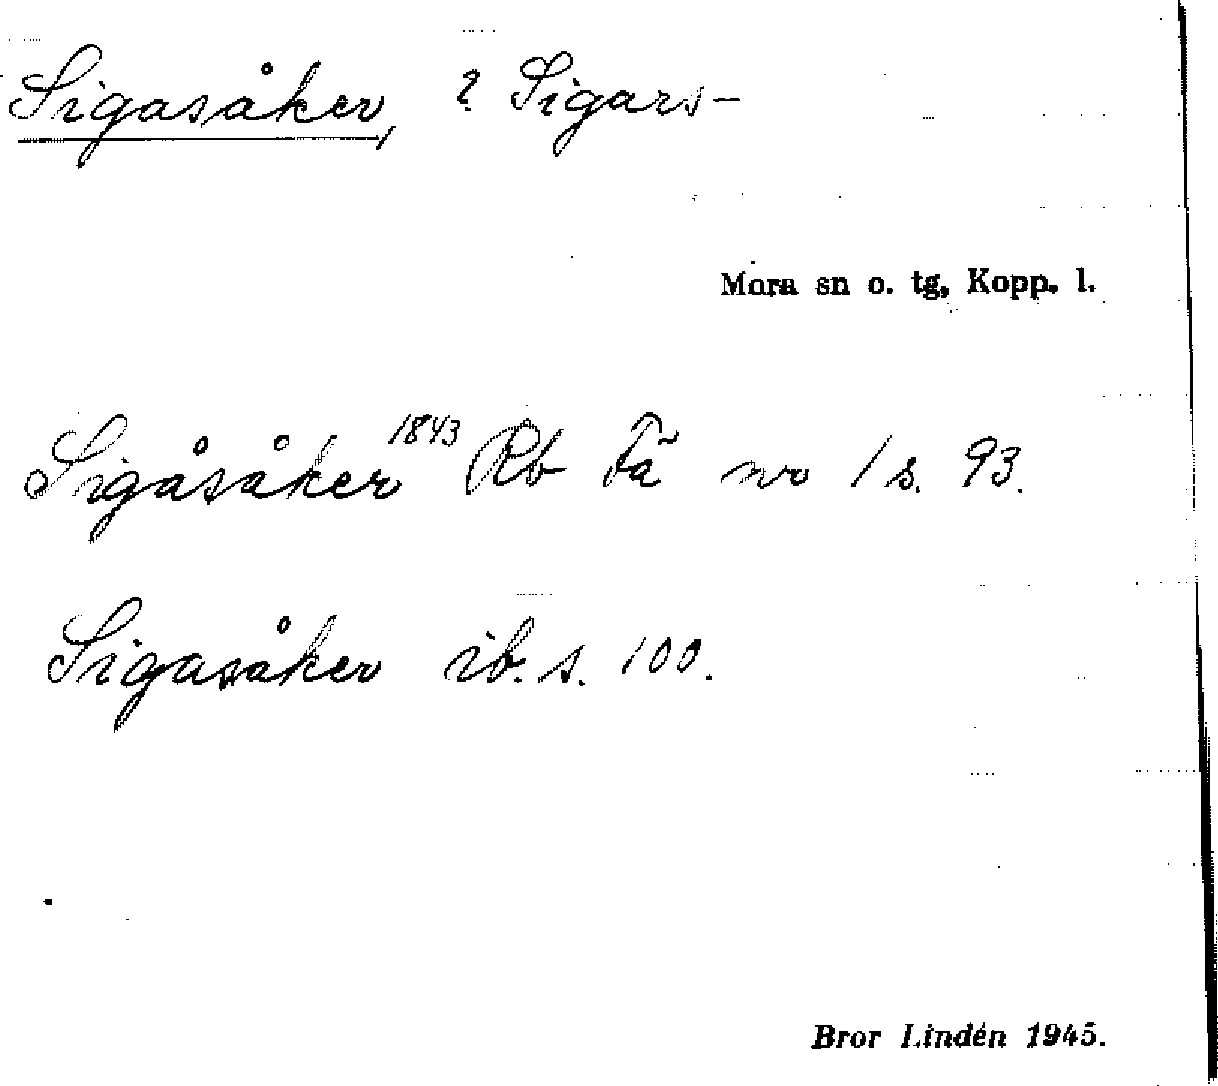 Sigasåker, ? Sigars-
Mora sn o. tg, Kopp. l.
Sigåsåker 1843 Rb Fä nr 1 s. 93.
Sigasåker ib. s. 100.
Bror Lindén 1945.